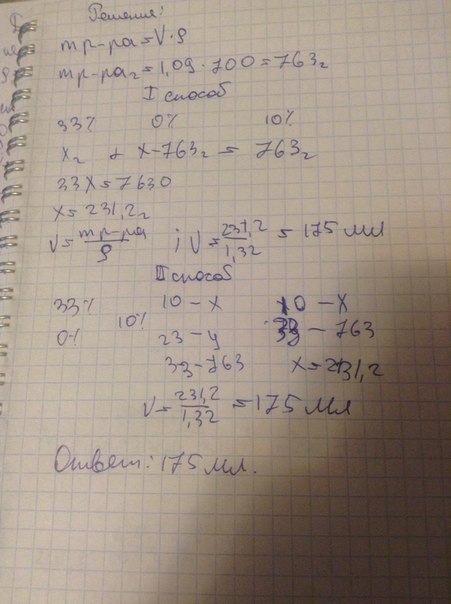 Решение:
mр-ра = V·ρ
mр-ра₂ = 1,09·700 = 763г
I способ
33% 0% 10%
x г + x-763г = 763г
33x = 7630
x = 231,2г
V = mр-ра/ρ ; V = 231,2/1,32 = 175 мл
II способ
33% 10 – x 10 – x
10%
0% 23 – y 33 – 763
33 – 763 x = 231,2
V = 231,2/1,32 = 175 мл
Ответ: 175 мл.